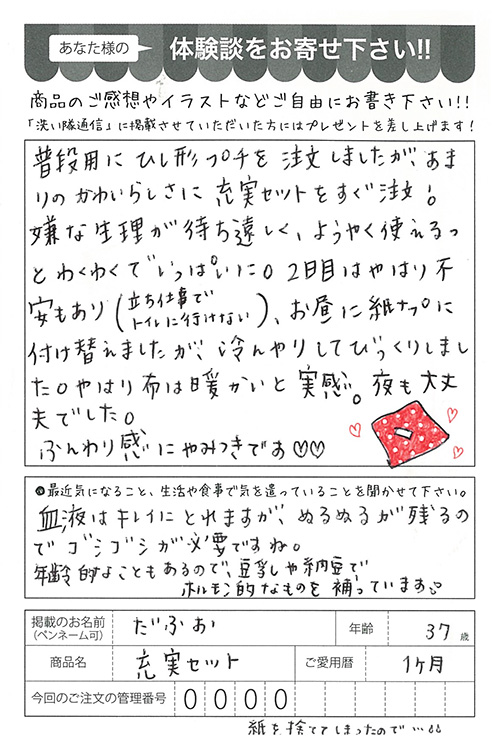 あなた様の 体験談をお寄せ下さい!!
商品のご感想やイラストなどご自由にお書き下さい!!
「洗い隊通信」に掲載させていただいた方にはプレゼントを差し上げます!
普段用にひし形プチを注文しましたが、あま
りのかわいらしさに充実セットをすぐ注文!
嫌な生理が待ち遠しく、ようやく使えるっ
とわくわくでいっぱいに。2日目はやはり不
安もあり(立ち仕事で
トイレに行けない)、お昼に紙ナプに
付け替えましたが、冷んやりしてびっくりしまし
た。やはり布は暖かいと実感。夜も大丈
夫でした。
ふんわり感にやみつきです♡♡
●最近気になること、生活や食事で気を遣っていることを聞かせて下さい。
血液はキレイにとれますが、ぬるぬるが残るの
でゴシゴシが必要ですね。
年齢的なこともあるので、豆乳や納豆で
ホルモン的なものを補っています
掲載のお名前
(ペンネーム可) だふお 年齢 37歳
商品名 充実セット ご愛用暦 1ヶ月
今回のご注文の管理番号 0 0 0 0
紙を捨ててしまったので…